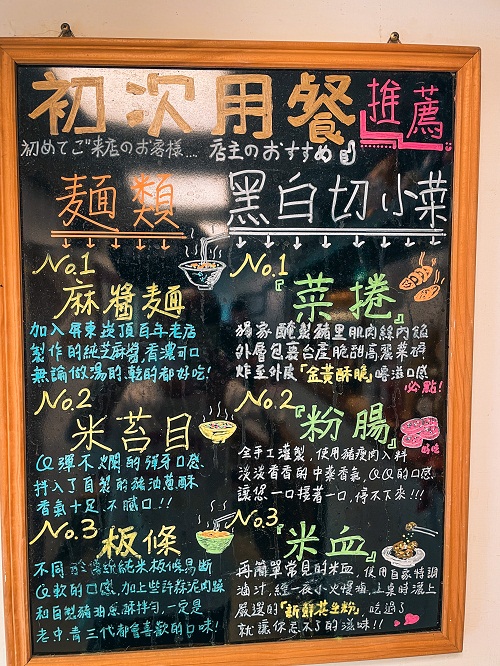 初次用餐 推薦
初めてご来店のお客様.... 店主のおすすめ
麵類
No.1
麻醬麵
加入屏東崁頂百年老店
製作的純芝麻醬,香濃可口
無論做湯的、乾的都好吃!
No.2
米苔目
QQ彈不爛的彈牙口感
拌入了自製的豬油蔥酥
香氣十足、不膩口!!
No.3
板條
不同於傳統純米板條易斷
Q軟的口感,加上些許蒜泥肉燥
和自製豬油蔥酥拌勻,一定是
老中青三代都會喜歡的口味!
黑白切小菜
No.1
『菜捲』
獨家醃製豬里肌肉絲內餡
外層包裹台產脆甜高麗菜碎
炸至外皮「金黃酥脆」嚐滋口感
必點!
No.2
『粉腸』
全手工灌製,使用豬瘦肉入料
淡淡香香的中藥香氣,QQ的口感
讓您一口接著一口,停不下來!!!
No.3
『米血』
再簡單常見的米血,使用自家特調
滷汁,經一夜小火慢燉,上桌時灑上
嚴選的「新鮮花生粉」吃過了
就讓你忘不了的滋味!!